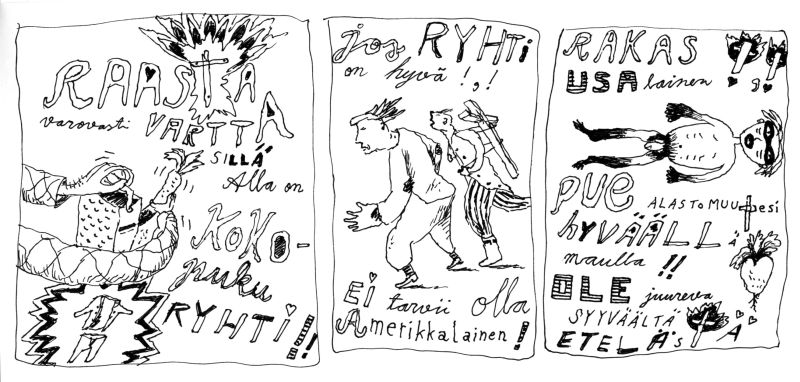 RAASTA
varovasti VARTTA
SILLÄ
Alla on
KOKO-
puku
RYHTI!!
jos RYHTI
on hyvä !,!
Ei tarvii olla
Amerikkalainen!
RAKAS
USAlainen
PUE ALASTOMUUtesi
hYVÄÄLLä
maulla !!
OLE juureva
SYYVÄÄLTÄ
ETELÄs A